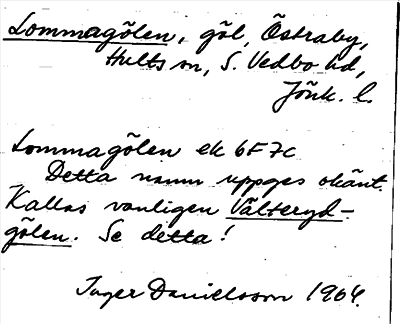 Lommagölen, göl, Östraby,
Hults sn, S. Vedbo hd,
Jönk. l.
Lommagölen ek 6F7c
Detta namn uppges okänt.
Kallas vanligen Välteryd-
gölen. Se detta!
Inger Danielsson 1964.